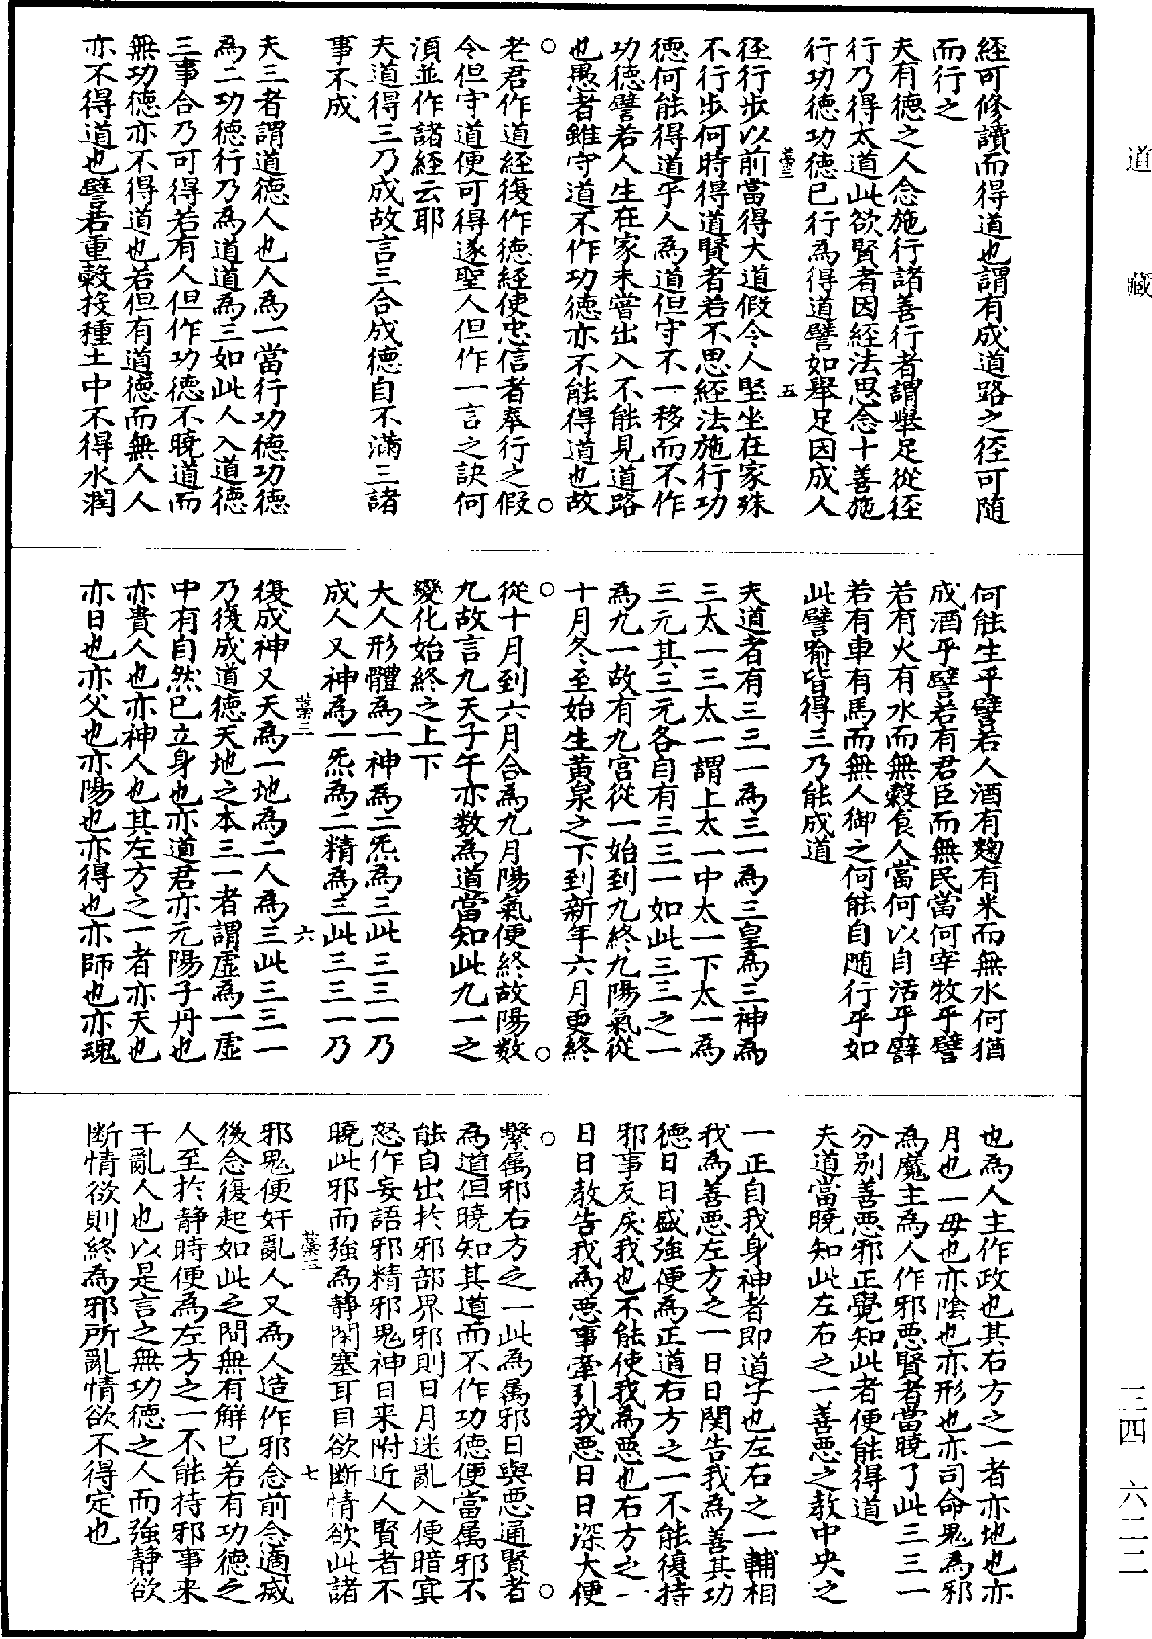 道藏
經可修讀而得道也謂有成道路之徑可随
而行之
夫有德之人念施行諸善行者謂舉足從徑
行乃得太道此欲賢者因經法思念十善施
行功德功德已行為得道譬如舉足因成人
五
徑行步以前當得大道假令人堅坐在家殊
不行步何時得道賢者若不思經法施行功
德何能得道乎人為道但守不一移而不作
功德譬若人生在家未嘗出入不能見道路
也愚者雖守道不作功德亦不能得道也故
老君作道經復作德經使忠信者奉行之假
令但守道便可得遂聖人但作一言之訣何
湏並作諸經云耶
夫道得三乃成故言三合成德自不滿三諸
事不成
夫三者謂道德人也人為一當行功德功德
為二功德行乃為道道為三如此人入道德
三事合乃可得若有人但作功德不曉道而
無功德亦不得道也若但有道德而無人人
亦不得道也譬若重穀投種土中不得水潤
何能生乎譬若人酒有麹有米而無水何猶
成酒乎譬若有君臣而無民當何宰牧乎譬
若有火有水而無穀食人當何以自活乎譬
若有車有馬而無人御之何能自随行乎如
此譬喻皆得三乃能成道
夫道者有三三一為三一為三皇為三神為
三太一三太一謂上太一中太一下太一為
三元其三元各自有三三一如此三三之一
為九一故有九宮從一始到九終九陽氣從
十月冬至始生黄泉之下到新年六月更終
從十月到六月合為九月陽氣便終故陽数
九故言九天子午亦数為道當知此九一之
變化始終之上下
大人形體為一神為二炁為三此三三一乃
成人又神為一炁為二精為三此三三一乃
六
復成神又天為一地為二人為三此三三一
乃復成道德天地之本三一者謂虛為一虛
中有自然已立身也亦道君亦元陽子丹也
亦貴人也亦神人也其左方之一者亦天也
亦日也亦父也亦陽也亦得也亦師也亦魂
也為人主作政也其右方之一者亦地也亦
月也一毋也亦陰也亦形也亦司命鬼為邪
為魔主為人作邪恶賢者當曉了此三三一
分别善恶邪正覺知此者便能得道
夫道當曉知此左右之一善恶之教中央之
一正自我身神者即道子也左右之一輔相
我為善恶左方之一日日関告我為善其功
德日日盛強便為正道右方之一不能復持
邪事反戾我也不能使我為恶也右方之一
日日教告我為恶事牽引我恶日日深大便
繫属邪右方之一此為属邪日與恶通賢者
為道但曉知其道而不作功德便當属邪不
能自出於邪部界邪則日月迷亂入便暗冥
怒作妄語邪精邪鬼神日来附近人賢者不
曉此邪而強為静閉塞耳目欲断情欲此諸
七
邪鬼便奸亂人又為人造作邪念前念適㓕
後念復起如此之間無有解已若有功德之
人至於静時便為左方之一不能持邪事来
干亂人也以是言之無功德之人而強静欲
断情欲則終為邪所亂情欲不得定也
三四 六二二